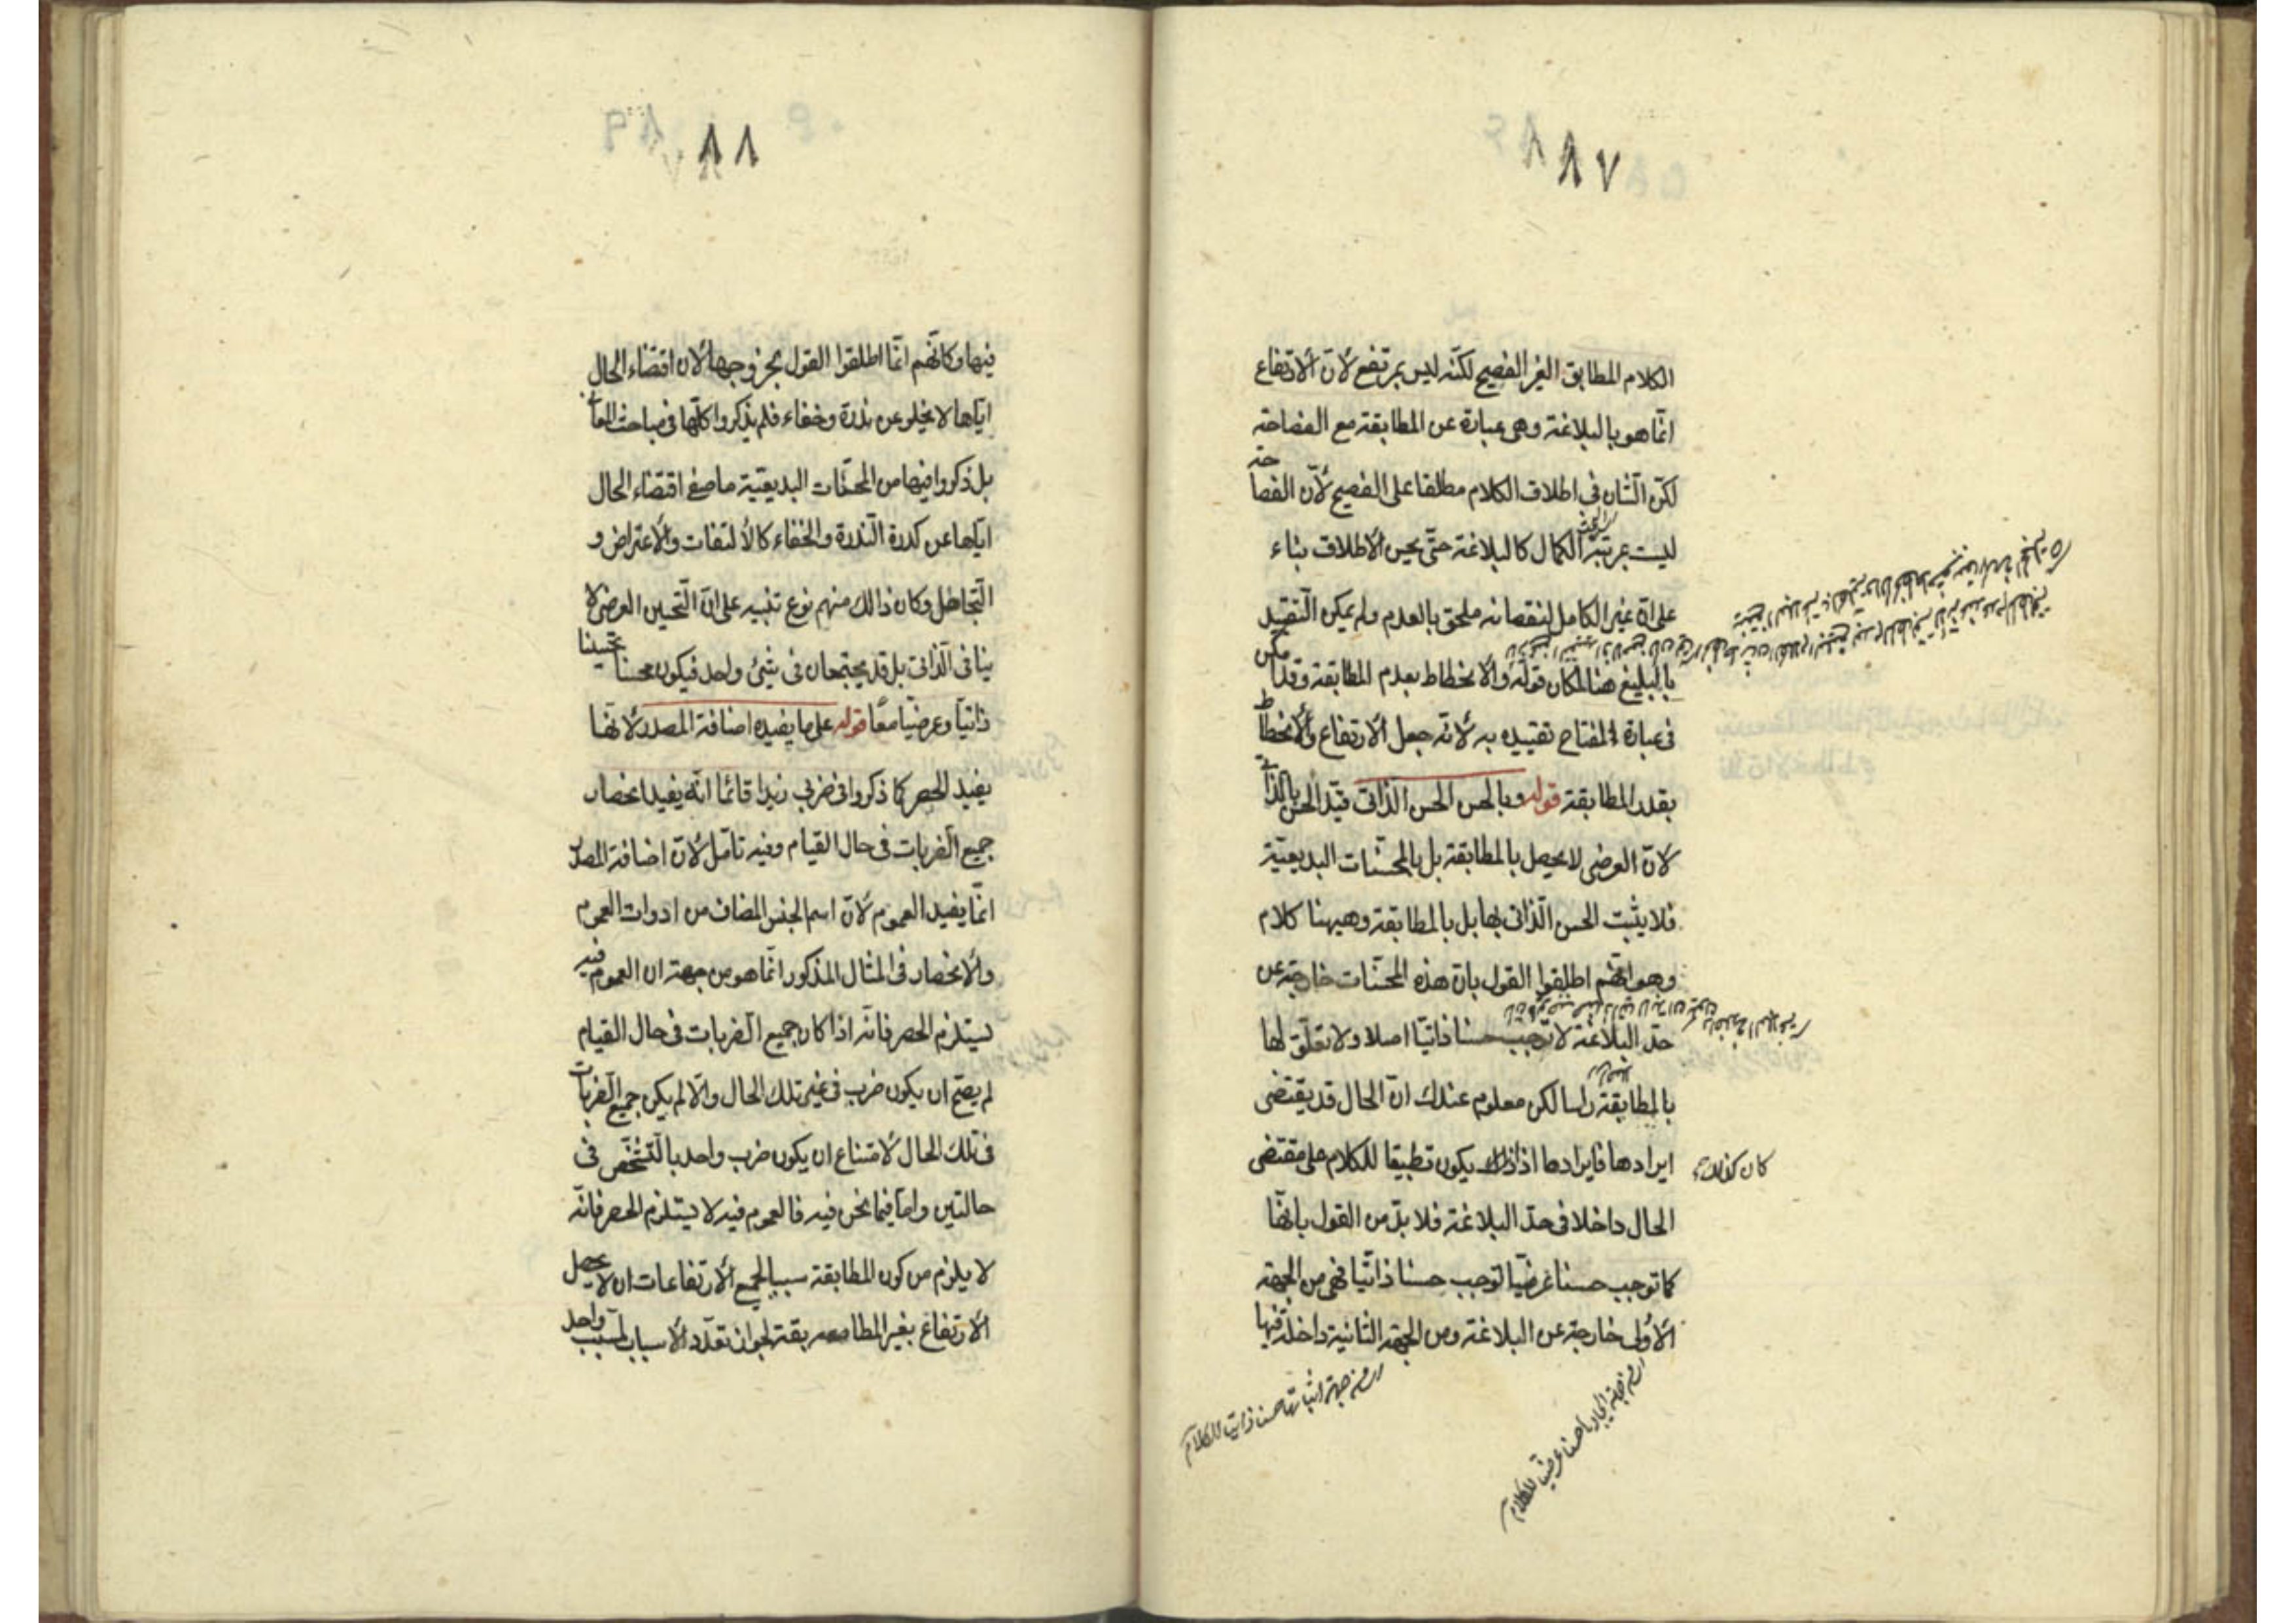 ٨٧
الكلام المطابق الغير الفصيح لكنّه ليس بمرتفع لأنّ الأرتفاع
انّما هو بالبلاغة وهى عبارة عن المطابقة مع الفصاحة
لكنّ الشّان فى اطلاق الكلام مطلقا على الفصيح لأنّ الفصاحة
ليست بمرتبة الكمال كالبلاغة حتّى يحسن الأطلاق بناء
على انّ غير الكامل لنقصانه ملحق بالعدم ولم يمكن التّقييد
بالبليغ هنا لمكان قوله والأنحطاط بعدم المطابقة وقد امكن
فى عبارة المفتاح تقييده به لأنّه جعل الأرتفاع والأنحطاط
بقدر المطابقة قوله وبالحسن الحسن الذّاتى قيّد الحسن بالذّاتى
لانّ العرضى لا يحصل بالمطابقة بل بالمحسّنات البديعيّة
فلا يثبت الحسن الذّاتى بها بل بالمطابقة وهيهنا كلام
وهو انّهم اطلقوا القول بانّ هذه المحسّنات خارجة عن
حدّ البلاغة لا توجب حسنا ذاتيّا اصلا ولا تعلّق لها
بالمطابقة راسا لكن معلوم عندك انّ الحال قد يقتضى
ايرادها فايرادها اذ ذاك يكون تطبيقا للكلام على مقتضى
كان كذلك
الحال داخلا فى حدّ البلاغة فلا بدّ من القول بانّها
كما توجب حسنا عرضيّا توجب حسنا ذاتيّا فهى من الجهة
الأولى خارجة عن البلاغة ومن الجهة الثانية داخلة فيها
اى من جهة ايجابها حسنا عرضيّا للكلام
اى من جهة اثباتها حسنا ذاتيّا للكلام
٨٨
فيها وكانّهم انّما اطلقوا القول بخروجها لأن اقتضاء الحال
ايّاها لا يخلو عن ندرة وخفاء فلم يذكروا كلّها فى مباحث المعا
بل ذكروا فيها من المحسّنات البديعيّة ما صفى اقتضاء الحال
ايّاها عن كدرة النّدرة والخفاء كالألتفات والأعتراض و
التّجاهل وكان ذالك منهم نوع تنبيه على انّ التّحسين العرضى لا
ينافى الذّاتى بل قد يجتمعان فى شيئ واحد فيكون محسنا تحسينا
ذاتيّا وعرضيّا معًا قوله على ما يفيده اضافة المصدر لأنّها
يفيد الحصر كما ذكروا فى ضربى زيدا قائما انّه يفيد انحصار
جميع الضّربات فى حال القيام وفيه تامّل لأنّ اضافة المصدر
انّما يفيد العموم لأنّ اسم الجنس المضاف من ادوات العموم
والأنحصار فى المثال المذكور انّما هو من جهة ان العموم فيه
يستلزم الحصر فانّه اذا كان جميع الضّربات فى حال القيام
لم يصحّ ان يكون ضرب فى غير تلك الحال والّا لم يكن جميع الضّربات
فى تلك الحال لأمتناع ان يكون ضرب واحد بالتّشخّص فى
حالتين وامّا فيما نحن فيه فالعموم فيه لا يستلزم الحصر فانّه
لا يلزم من كون المطابقة سببا لجميع الأرتفاعات ان لا يحصل
الأرتفاع بغير المطابقة لجواز تعدّد الأسباب لمسبّب واحد